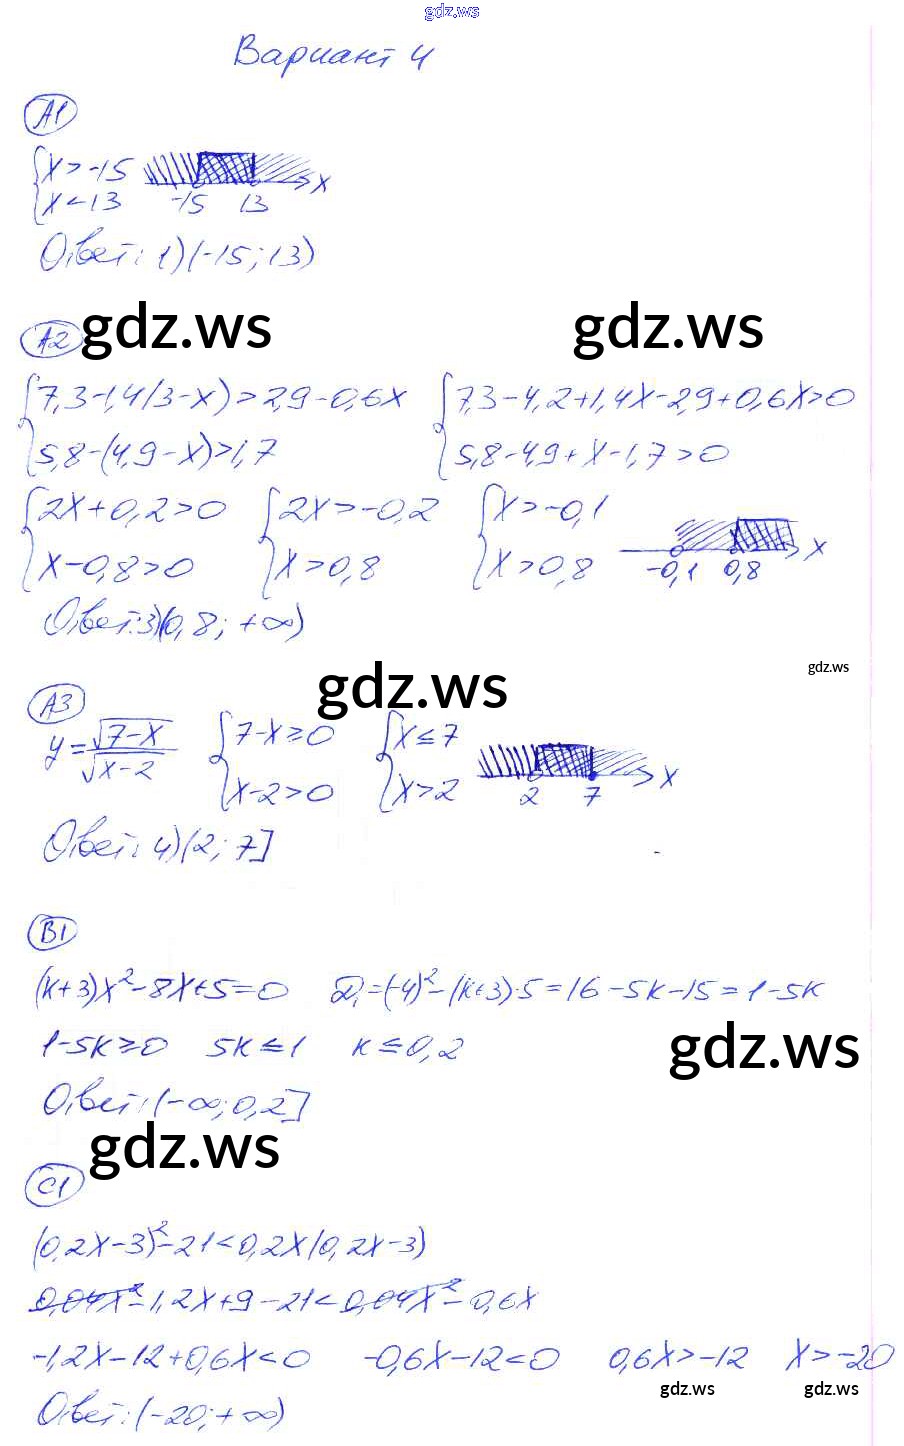 gdz.ws
Вариант 4
А1
{x > -15
{x < 13
-15 13 x
Ответ: 1) (-15; 13)
А2
gdz.ws gdz.ws
{7,3-1,4(3-x) > 2,9-0,6x {7,3-4,2+1,4x-2,9+0,6x>0
{5,8-(4,9-x)>1,7 {5,8-4,9+x-1,7>0
{2x+0,2>0 {2x>-0,2 {x>-0,1
{x-0,8>0 {x>0,8 {x>0,8
-0,1 0,8 x
Ответ: 3) (0,8; +∞)
gdz.ws
gdz.ws
А3
y = √(7-x)/√(x-2) {7-x≥0 {x≤7
{x-2>0 {x>2
2 7 x
Ответ: 4) (2; 7]
В1
(k+3)x²-8x+5=0 D₁=(-4)²-(k+3)·5=16-5k-15=1-5k
1-5k≥0 5k≤1 k≤0,2
gdz.ws
Ответ: (-∞; 0,2]
gdz.ws
С1
(0,2x-3)²-21<0,2x(0,2x-3)
0,04x²-1,2x+9-21<0,04x²-0,6x
-1,2x-12+0,6x<0 -0,6x-12<0 0,6x>-12 x>-20
gdz.ws gdz.ws
Ответ: (-20; +∞)